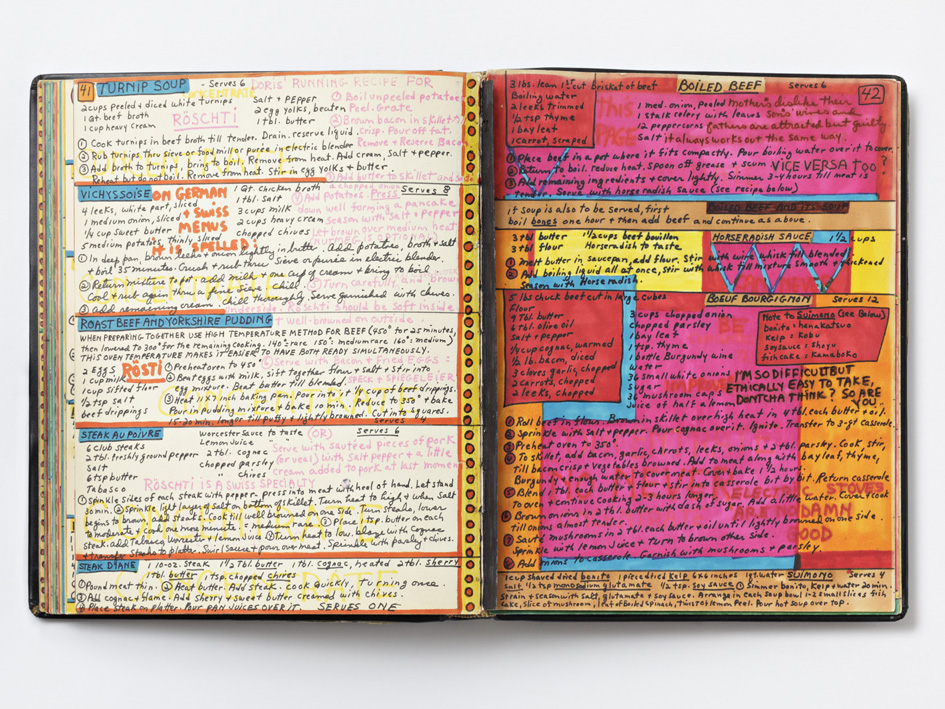 41 TURNIP SOUP Serves 6
2 cups peeled + diced white turnips
1 qt beef broth
1 cup heavy cream
Salt + PEPPER
2 egg yolks, beaten
1 tbl. butter
① Cook turnips in beef broth till tender. Drain. reserve liquid
② Rub turnips thru sieve or food mill or purée in electric blender
③ Add broth to turnips, bring to boil. Remove from heat. Add cream, Salt + pepper.
Reheat but do not boil. Remove from heat. Stir in egg yolks + butter
DORIS' RUNNING RECIPE FOR
RÖSCHTI
① Boil unpeeled potatoes
Peel. Grate
② Brown bacon in skillet till
Crisp. Pour off fat.
Remove + Reserve Bacon
③ Add butter to skillet and
④ Add potatoes. Press
down well forming a pancake
Season with Salt + pepper
Let brown over medium heat
Turn carefully and Brown
should be soft inside
+ well-browned on outside.
Serve with Bacon + Fried EGGS:
SPECK + SPIEGELEIER
(OR)
Serve with Sautéed pieces of pork
(or veal) with Salt pepper + a little
cream added to pork at last moment
RÖSCHTI IS A SWISS SPECIALTY
VICHYSSOISE Serves 8
ON GERMAN
+ SWISS
MENUS
SPELLED:
RÖSTI
4 leeks, white part, sliced
1 medium onion, sliced
1/4 cup sweet butter
5 medium potatoes, thinly sliced
1 qt. chicken broth
1 tbl. salt
3 cups milk
2 cups heavy cream
chopped chives
① In deep pan, brown leeks + onion lightly in butter. Add potatoes, broth + salt
+ boil 35 minutes. Crush + rub thru sieve or purée in electric blender.
② Return mixture to pot, add milk + one cup of cream + bring to boil.
Cool + rub again thru a fine sieve. Chill.
③ Add remaining cream. Chill thoroughly. Serve garnished with chives.
ROAST BEEF AND YORKSHIRE PUDDING
WHEN PREPARING TOGETHER USE HIGH TEMPERATURE METHOD FOR BEEF (450° for 25 minutes,
then lowered to 300° for the remaining cooking. 140°: rare 150°: medium rare 160°: medium)
THIS OVEN TEMPERATURE MAKES IT EASIER TO HAVE BOTH READY SIMULTANEOUSLY.
2 eggs
1 cup milk
1 cup sifted flour
1/2 tsp salt
beef drippings
① Preheat oven to 450°
② Beat eggs with milk. Sift together flour + salt + stir into
egg mixture. Beat till blended.
③ Heat 11x7 inch baking pan. Pour into it 1/4 cup of beef drippings.
Pour in pudding mixture + bake 10 min. Reduce to 350° + bake
15-20 min. longer till puffy + lightly browned. Cut into squares.
Serves 4
STEAK AU POIVRE Serves 6
6 club steaks
2 tbl. freshly ground pepper
Salt
1 tsp butter
Tabasco
Worcester Sauce to taste
Lemon Juice
2 tbl. cognac
chopped parsley
" chives
① Sprinkle sides of each steak with pepper. Press into meat with heel of hand. Let stand
30 min. ② Sprinkle light layer of salt on bottom of skillet. Turn heat to high + when salt
begins to brown, add steaks. Cook till well browned on one side. Turn steaks, lower
to moderate + cook one more minute: medium rare ③ Place 1 tsp. butter on each
steak. add Tabasco, Worcester + Lemon Juice ④ Turn heat to low. blaze with Cognac
+ transfer steaks to platter. Swirl sauce + pour over meat. Sprinkle with parsley + chives.
STEAK DIANE 1 10-oz. Steak 1 1/2 tbl. butter 1 tbl. Cognac, heated 2 tbl. sherry
1 tbl. butter 1 tsp. chopped chives
① Pound meat thin. ② Heat butter. Add steak. cook quickly, turning once.
③ Add cognac + flame. Add sherry + sweet butter creamed with chives.
④ Place Steak on platter. Pour pan juices over it. SERVES ONE
BOILED BEEF Serves 6 42
3 lbs. lean 1st cut brisket of beef
Boiling water
2 leeks trimmed
1/2 tsp thyme
1 bay leaf
1 carrot, scraped
1 med. onion, peeled
1 stalk celery with leaves
12 peppercorns
Salt
THIS
PAGE
Mothers dislike their
sons' wives and
fathers are attracted but guilty.
it always works out the same way.
VICE VERSA TOO?
① Place beef in a pot where it fits compactly. Pour boiling water over to cover.
② Return to boil. reduce heat. Spoon off grease + scum
③ Add remaining ingredients + cover lightly. Simmer 3-4 hours till meat is
tender. Serve with horseradish sauce (see recipe below)
if Soup is also to be Served, first
boil bones one hour + then add beef and continue as above.
HORSERADISH SAUCE 1 1/2 cups
3 tbl butter
3 tbl flour
1 1/2 cups beef bouillon
Horseradish to taste
① Melt butter in saucepan, add flour. Stir with wire whisk till blended
② Add boiling liquid all at once, stir with whisk till mixture smooth + thickened
Season with Horseradish.
BOEUF BOURGIGNON Serves 12
5 lbs chuck beef cut in large cubes
Flour
9 tbl. butter
6 tbl. olive oil
salt + pepper
1/4 cup cognac, warmed
1/2 lb. bacon, diced
3 cloves garlic, chopped
2 carrots, chopped
2 leeks, chopped
3 cups chopped onion
chopped parsley
1 bay leaf
1 tsp. thyme
1 bottle Burgundy wine
water
36 small white onions
sugar
36 mushroom caps
juice of half a lemon
Note to Suimono (see Below)
bonito: hanakatsuo
kelp: Kobu
soy sauce: Shoyu
fishcake: Kamaboko
I'M SO DIFFICULT BUT
ETHICALLY EASY TO TAKE,
DONTCHA THINK? SO ARE
YOU.
① Roll beef in flour. Brown in skillet over high heat in 4 tbl. each butter + oil.
② Sprinkle with salt + pepper. Pour cognac over it. Ignite. Transfer to 3-qt casserole.
③ Preheat oven to 350°.
④ To skillet, add bacon, garlic, carrots, leeks, onions + 2 tbl. parsley. Cook, stir
till bacon crisp + vegetables browned. Add to meat along with bay leaf, thyme,
Burgundy + enough water to cover meat. Cover + bake 1 1/2 hours.
⑤ Blend 1 tbl. each butter + flour + stir into casserole bit by bit. Return casserole
to oven + continue cooking 2-3 hours longer.
⑥ Brown onions in 2 tbl. butter with dash of sugar. Add a little water. Cover + cook
till onions almost tender.
⑦ Sauté mushrooms in 2 tbl. each butter + oil until lightly browned on one side.
Sprinkle with lemon juice + turn to brown other side.
⑧ Add onions to casserole. Garnish with mushrooms + parsley.
STOVES
ARE
DAMN
GOOD
1 cup shaved dried bonito 1 piece dried kelp 6x6 inches 1 qt. water SUIMONO Serves 4
salt 1/2 tsp monosodium glutamate 1/2 tsp soy sauce ① Simmer bonito, kelp + water 20 min.
Strain + season with salt, glutamate + soy sauce. Arrange in each soup bowl 1-2 small slices fish
cake, slice of mushroom, leaf of boiled spinach, twist of lemon peel. Pour hot soup over top.